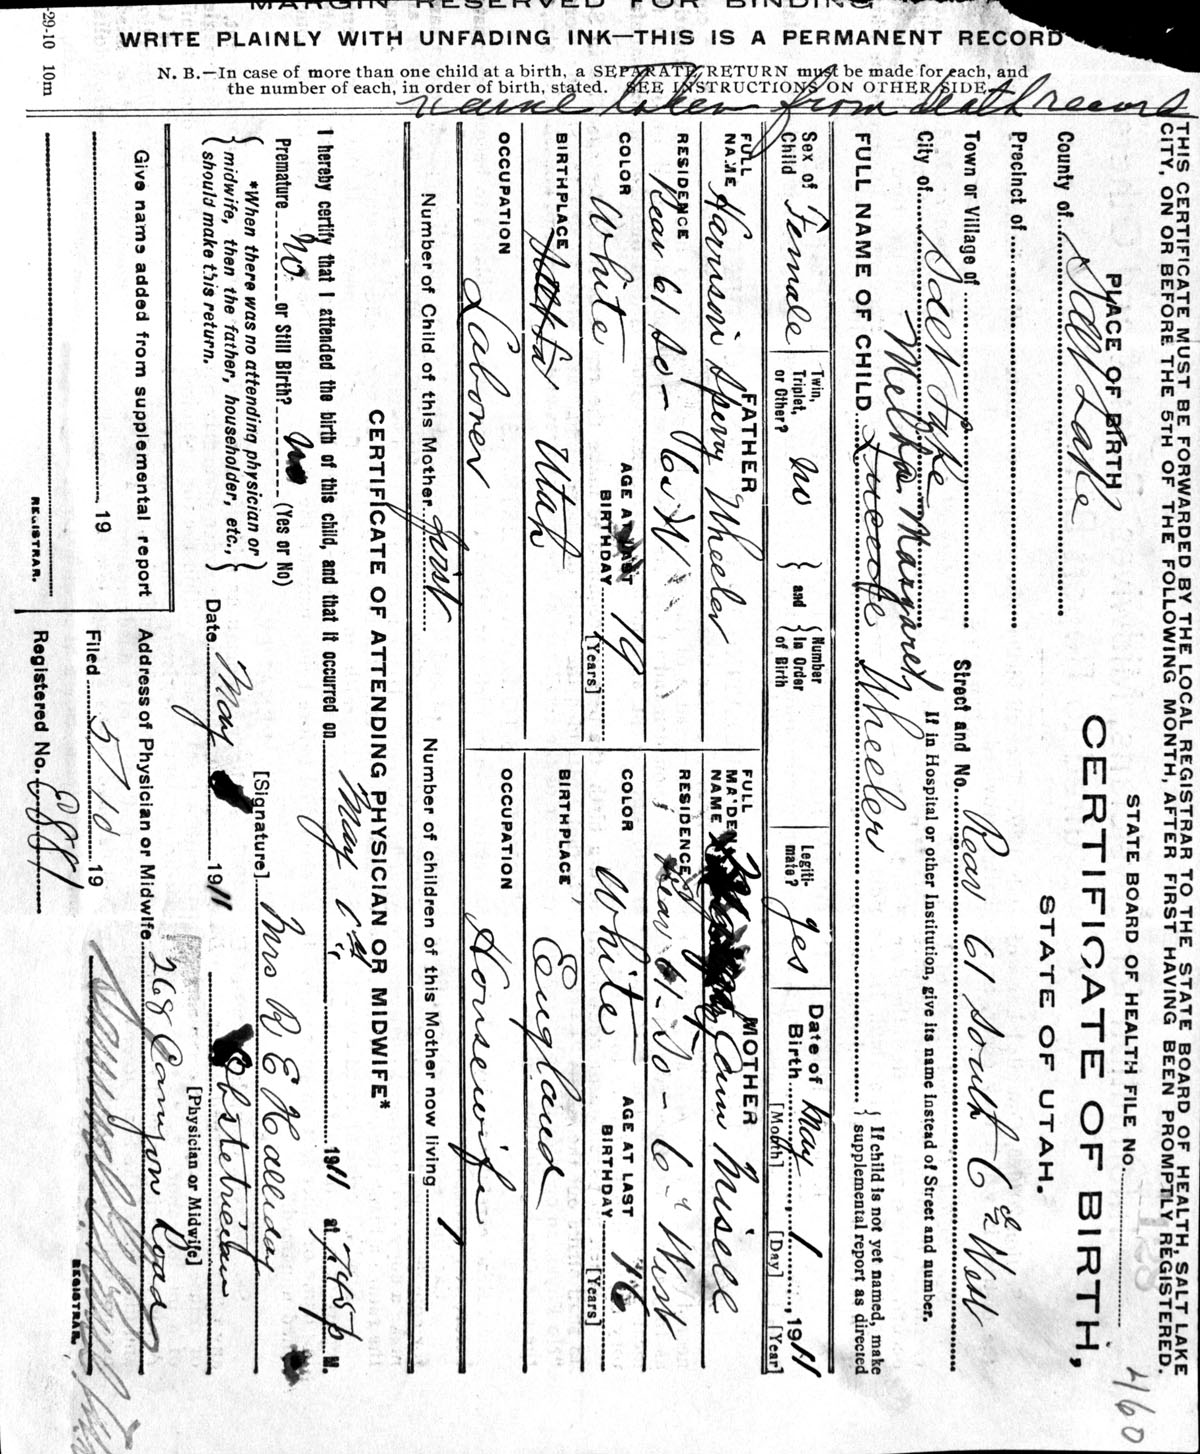 MARGIN RESERVED FOR BINDING
WRITE PLAINLY WITH UNFADING INK—THIS IS A PERMANENT RECORD
N. B.—In case of more than one child at a birth, a SEPARATE RETURN must be made for each, and
the number of each, in order of birth, stated. SEE INSTRUCTIONS ON OTHER SIDE.
name taken from death record
29-10 10m
THIS CERTIFICATE MUST BE FORWARDED BY THE LOCAL REGISTRAR TO THE STATE BOARD OF HEALTH, SALT LAKE
CITY, ON OR BEFORE THE 5TH OF THE FOLLOWING MONTH, AFTER FIRST HAVING BEEN PROMPTLY REGISTERED.
STATE BOARD OF HEALTH FILE NO. 128
460
CERTIFICATE OF BIRTH,
STATE OF UTAH.
PLACE OF BIRTH
County of Salt Lake
Precinct of
Town or Village of
Street and No. Rear 61 South 6th West
City of Salt Lake
If in Hospital or other Institution, give its name instead of Street and number.
Melba Margaret
FULL NAME OF CHILD Wheeler
If child is not yet named, make
supplemental report as directed
Sex of Child Female
Twin, Triplet, or Other? No
and Number in Order of Birth
Legitimate? yes
Date of Birth May 1, 1911
[Month] [Day] [Year]
FATHER
FULL NAME Harrison Sperry Wheeler
RESIDENCE Rear 61 So - 6 W
COLOR White
AGE AT LAST BIRTHDAY 19 [Years]
BIRTHPLACE Utah
OCCUPATION Laborer
MOTHER
FULL MAIDEN NAME
RESIDENCE Rear 61 - So - 6 - West
COLOR White
AGE AT LAST BIRTHDAY 16 [Years]
BIRTHPLACE England
OCCUPATION Housewife
Number of Child of this Mother first
Number of children of this Mother now living 1
CERTIFICATE OF ATTENDING PHYSICIAN OR MIDWIFE*
I hereby certify that I attended the birth of this child, and that it occurred on May 1st, 1911 at 7.45 p M.
Premature No or Still Birth? No (Yes or No)
*When there was no attending physician or
midwife, then the father, householder, etc.,
should make this return.
[Signature] Mrs R E Halliday
Obstetrician
[Physician or Midwife]
Date May 1911
Give name added from supplemental report
19
REGISTRAR.
Address of Physician or Midwife 268 Canyon Road
Filed 5/10 19
Registered No. 881
REGISTRAR.